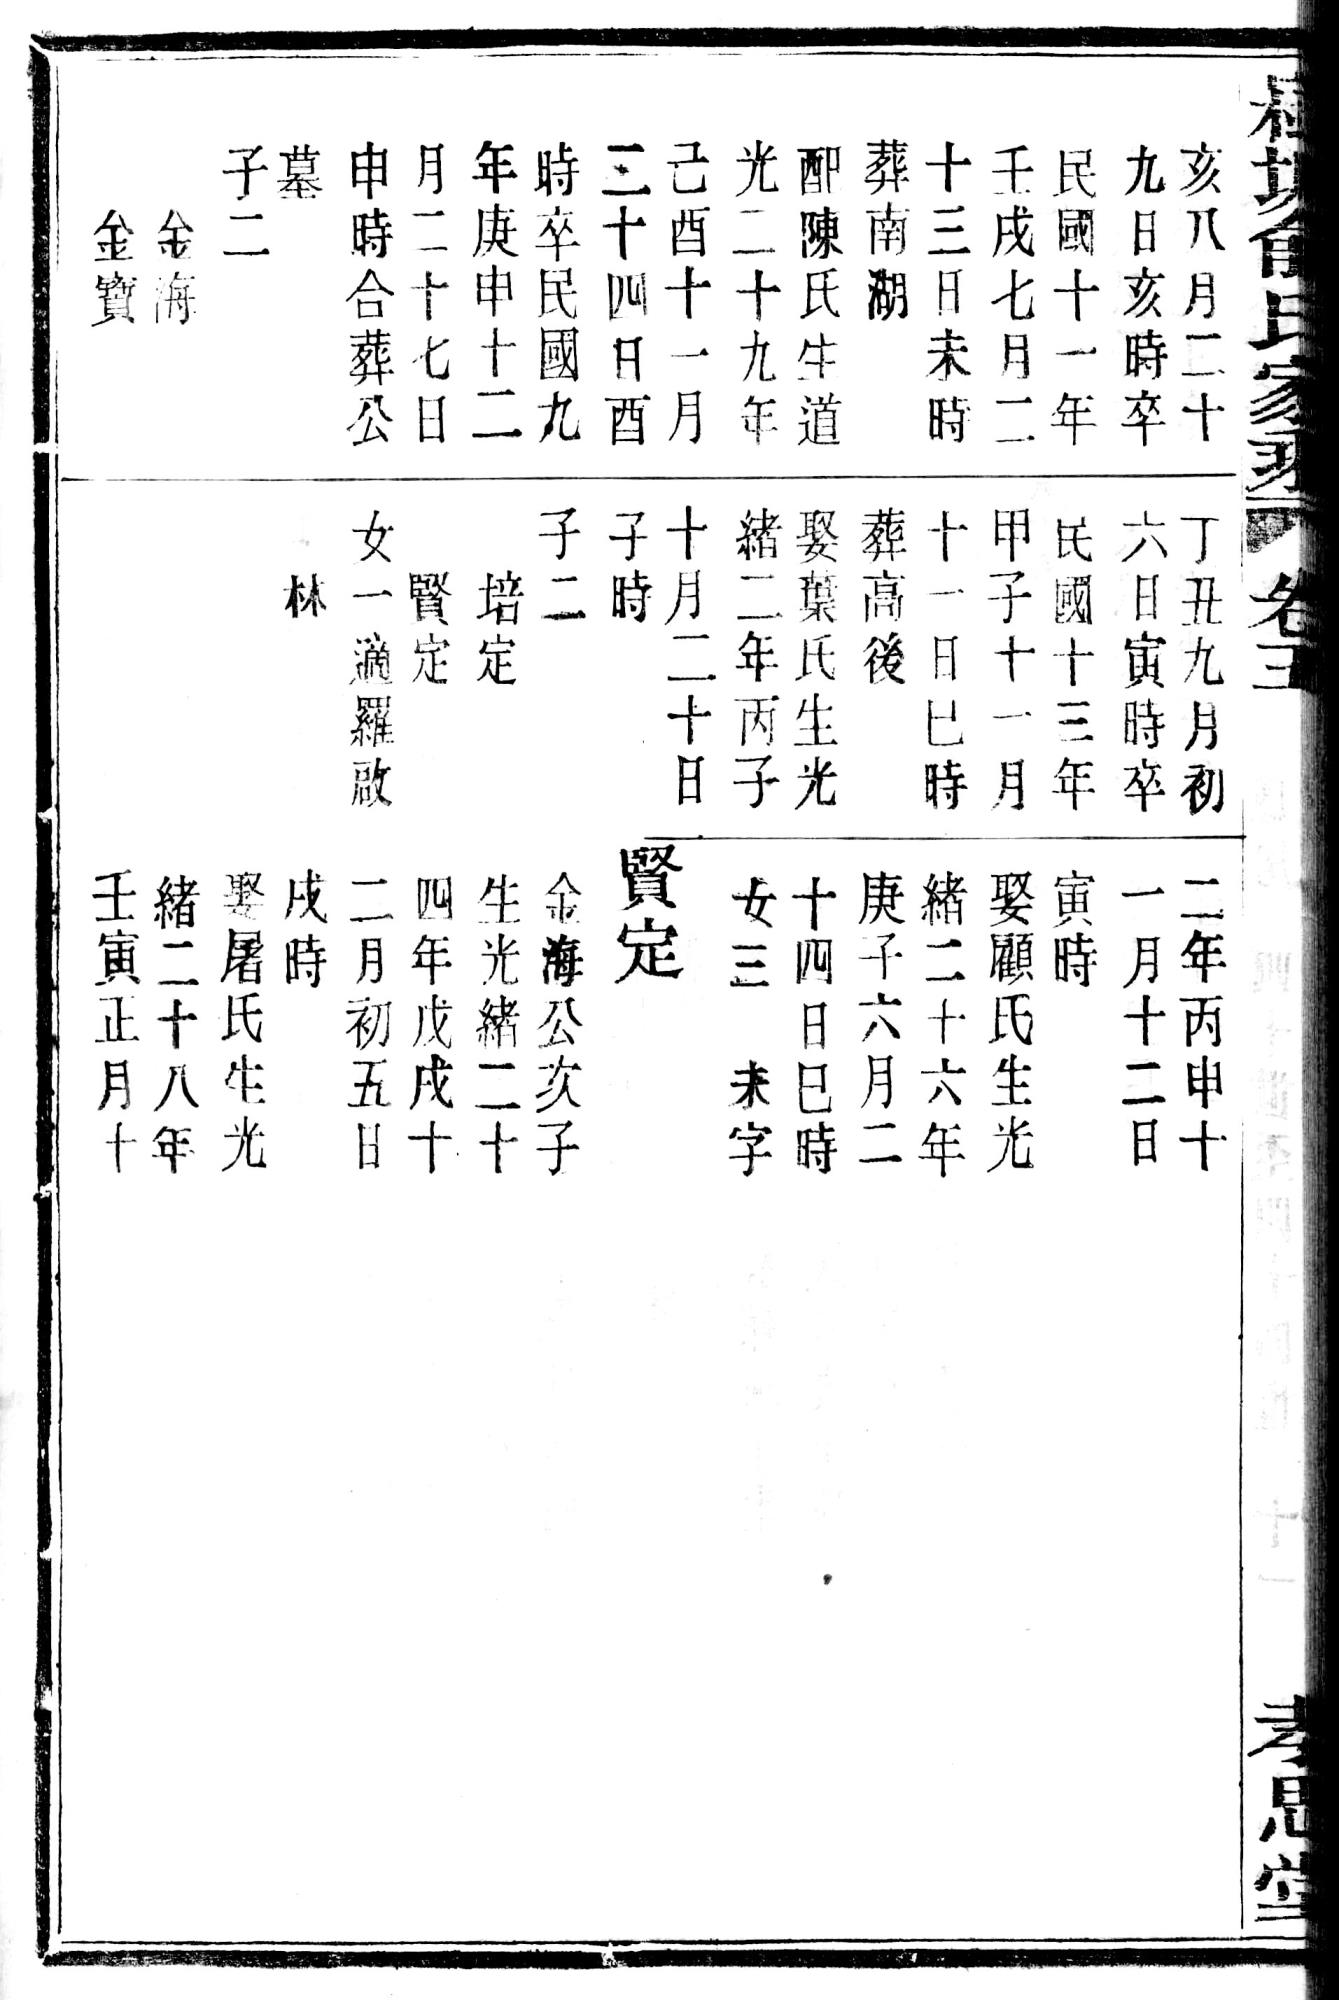 氏家乘
卷五
孝思堂
亥八月二十
九日亥時卒
民國十一年
壬戌七月二
十三日未時
葬南湖
配陳氏生道
光二十九年
己酉十一月
三十四日酉
時卒民國九
年庚申十二
月二十七日
申時合葬公
墓
子二
金海
金寶
丁丑九月初
六日寅時卒
民國十三年
甲子十一月
十一日巳時
葬高後
娶葉氏生光
緒二年丙子
十月二十日
子時
子二
培定
賢定
女一適羅啟
林
二年丙申十
一月十二日
寅時
娶顧氏生光
緒二十六年
庚子六月二
十四日巳時
女三 未字
賢定
金海公次子
生光緒二十
四年戊戌十
二月初五日
戌時
娶屠氏生光
緒二十八年
壬寅正月十